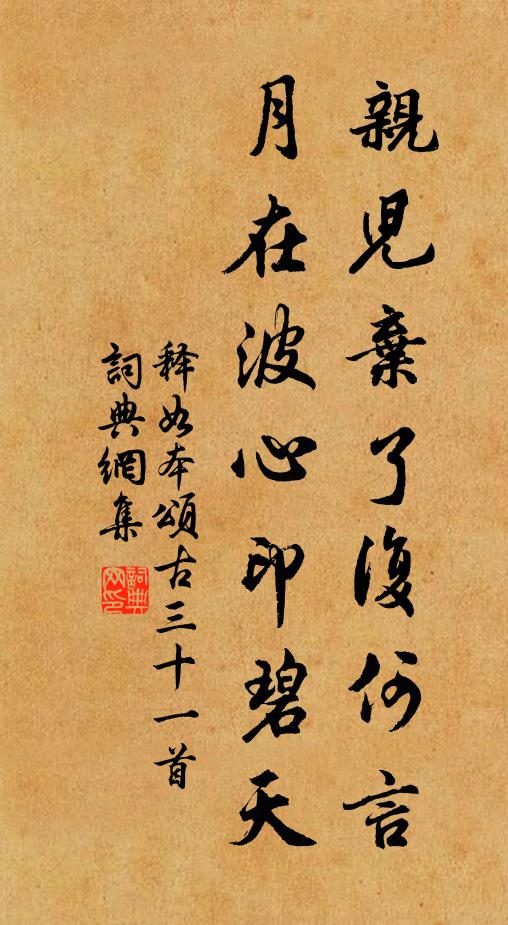 親児棄了復何言
月在波心印碧天
释如本頌古三十一首
詞典網集
詞典网印